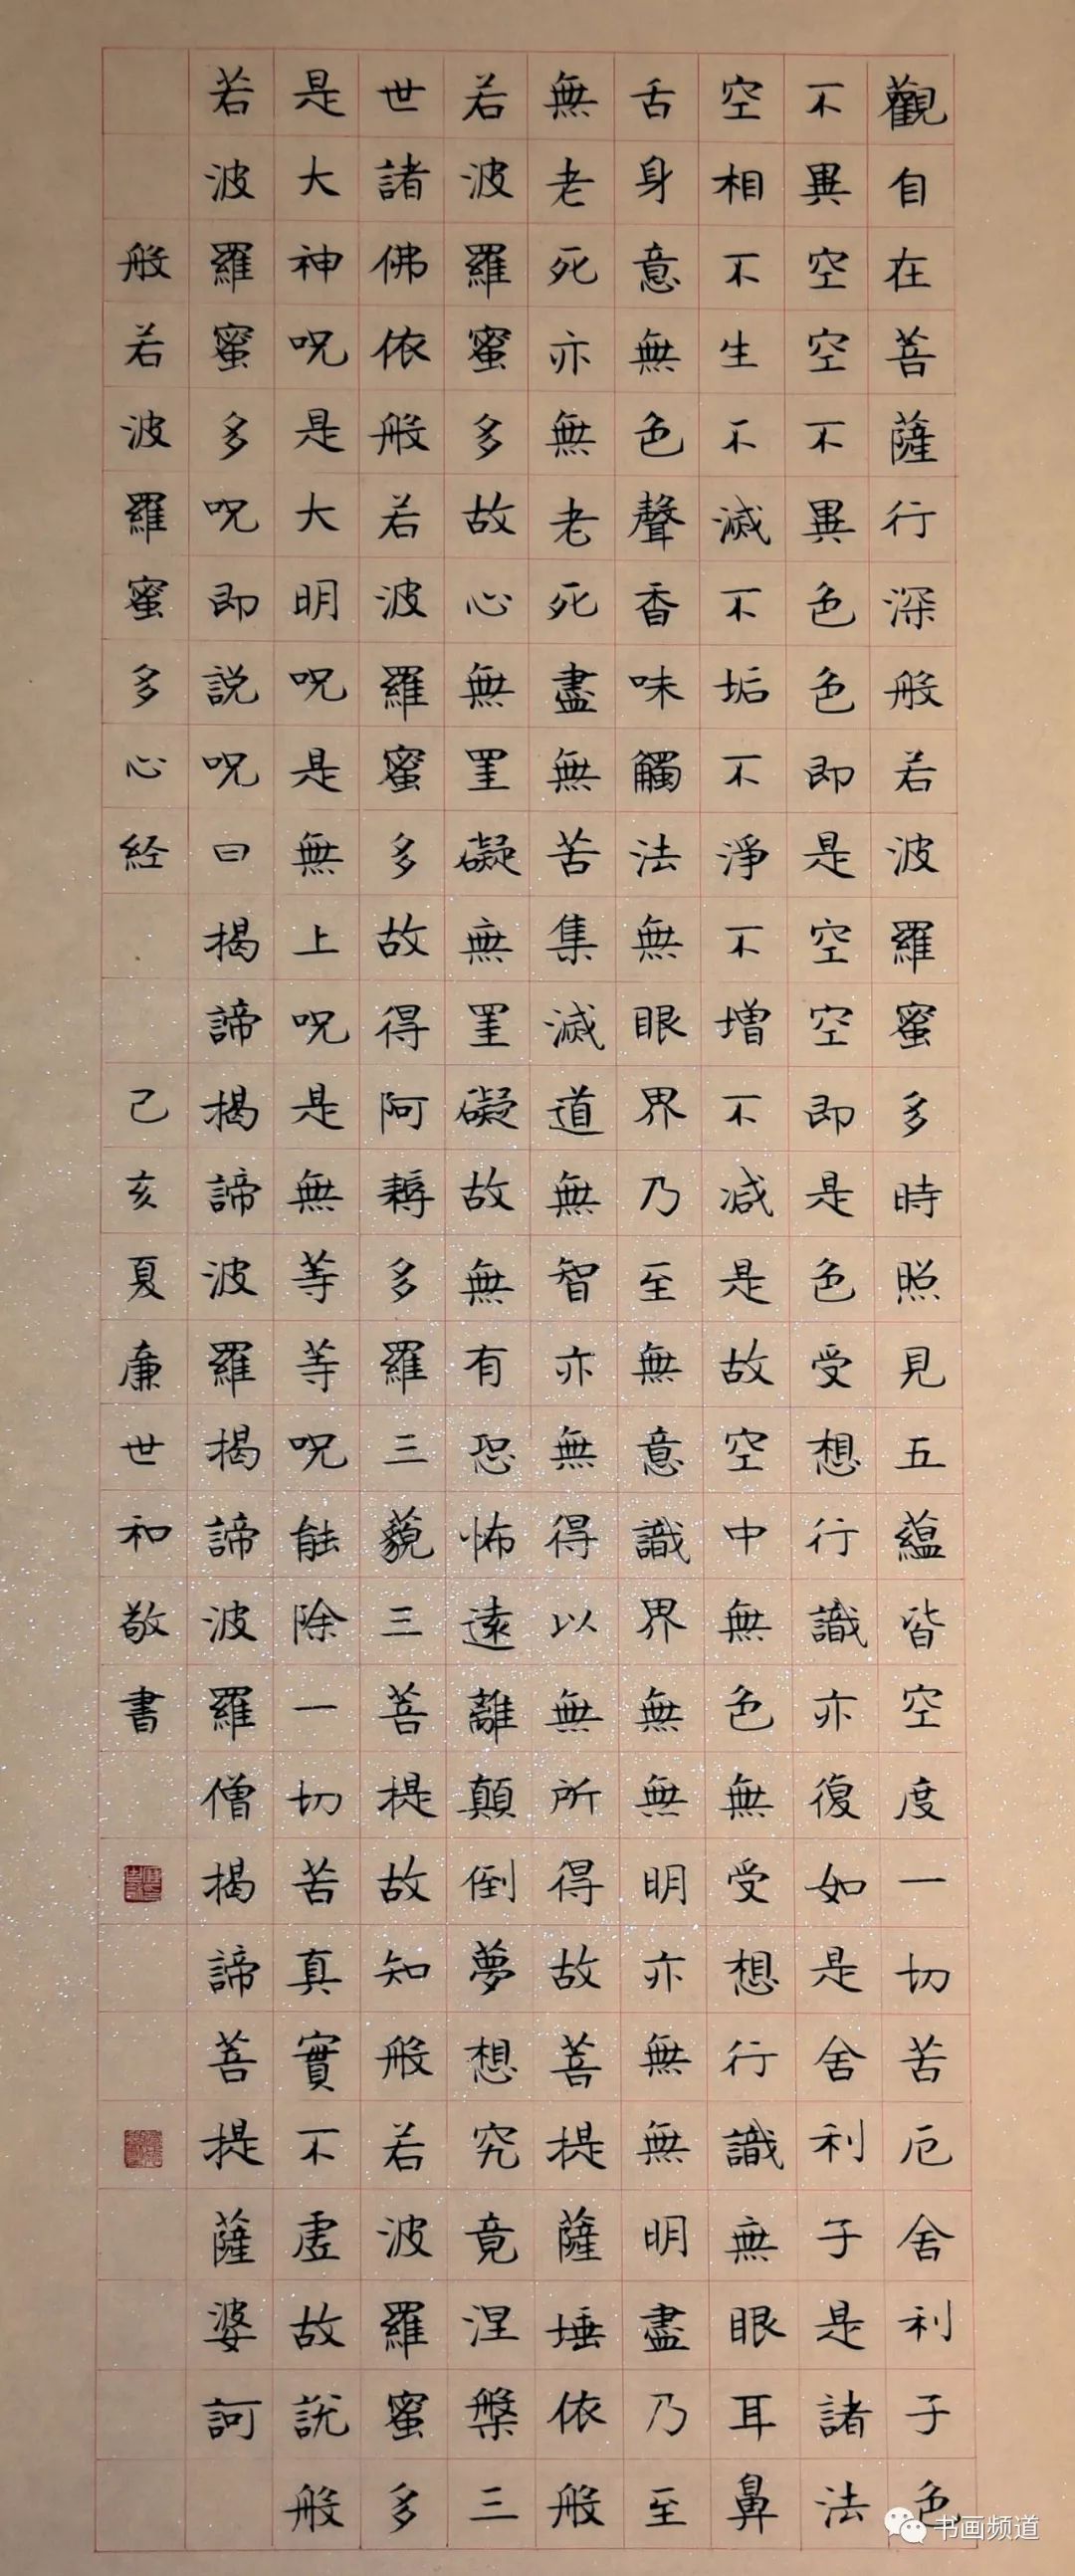 觀自在菩薩行深般若波羅蜜多時照見五蘊皆空度一切苦厄舍利子色
不異空空不異色色即是空空即是色受想行識亦復如是舍利子是諸法
空相不生不滅不垢不淨不增不減是故空中無色無受想行識無眼耳鼻
舌身意無色聲香味觸法無眼界乃至無意識界無無明亦無無明盡乃至
無老死亦無老死盡無苦集滅道無智亦無得以無所得故菩提薩埵依般
若波羅蜜多故心無罣礙無罣礙故無有恐怖遠離顛倒夢想究竟涅槃三
世諸佛依般若波羅蜜多故得阿耨多羅三藐三菩提故知般若波羅蜜多
是大神呪是大明呪是無上呪是無等等呪能除一切苦真實不虛故說般
若波羅蜜多呪即說呪曰揭諦揭諦波羅揭諦波羅僧揭諦菩提薩婆訶
般若波羅蜜多心経 己亥夏廉世和敬書
书画频道